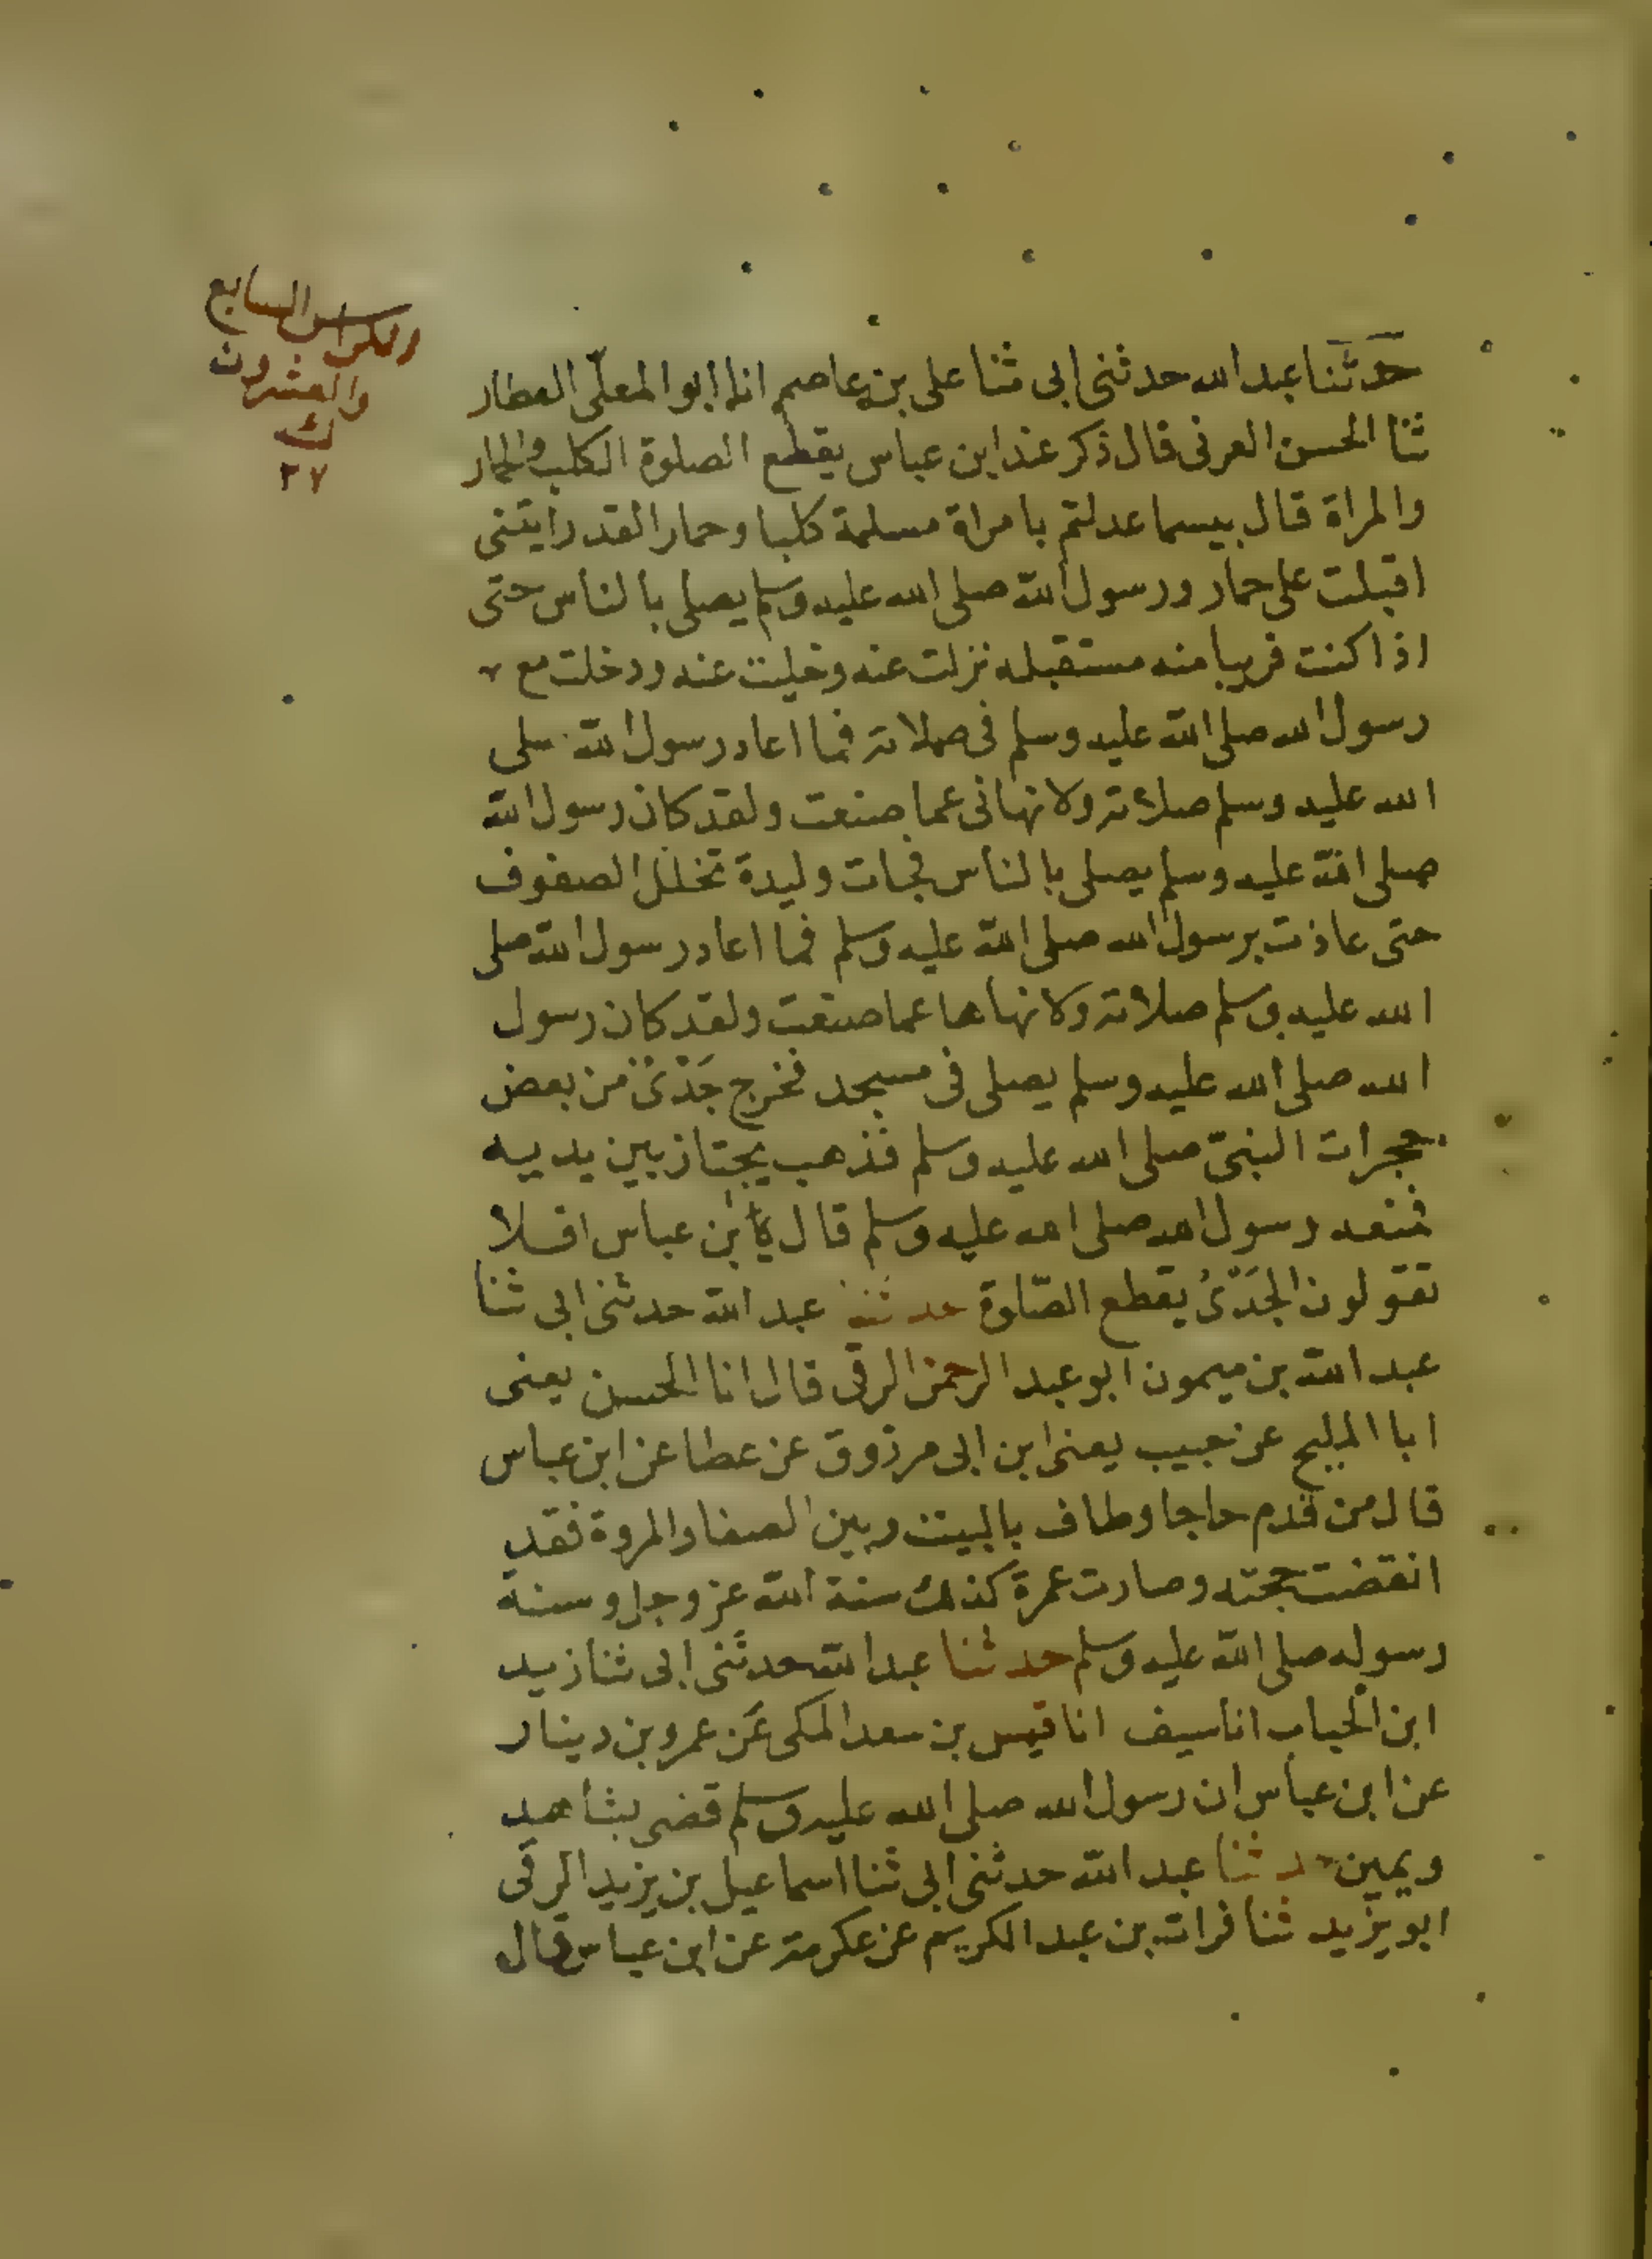 الكراس السابع
والعشرون
ك
٢٧
حدثنا عبد الله حدثنى ابى ثنا على بن عاصم انا ابو المعلّى العطار
ثنا الحسن العرنى قال ذكر عند ابن عباس يقطع الصلوة الكلب والحمار
والمراة قال بيسما عدلتم بامراة مسلمة كلبا وحمارا لقد رايتنى
اقبلت على حمار ورسول الله صلى الله عليه وسلم يصلى بالناس حتى
اذا كنت قريبا منه مستقبله نزلت عنه وخليت عنه ودخلت مع
رسول الله صلى الله عليه وسلم فى صلاته فما اعاد رسول الله صلى
الله عليه وسلم صلاته ولا نهانى عما صنعت ولقد كان رسول الله
صلى الله عليه وسلم يصلى بالناس فجات وليدة تخلل الصفوف
حتى عاذت برسول الله صلى الله عليه وسلم فما اعاد رسول الله صلى
الله عليه وسلم صلاته ولا نهاها عما صنعت ولقد كان رسول
الله صلى الله عليه وسلم يصلى فى مسجد فخرج جَدْىٌ من بعض
حجرات النبىّ صلى الله عليه وسلم فذهب يجتاز بين يديه
فمنعه رسول الله صلى الله عليه وسلم قال ابن عباس افلا
تقولون الجَدْىُ يقطع الصّلوة حدثنا عبد الله حدثنى ابى ثنا
عبد الله بن ميمون ابو عبد الرحمن الرقى قال انا الحسن يعنى
ابا المليح عن حبيب يعنى ابن ابى مرزوق عن عطا عن ابن عباس
قال من قدم حاجا وطاف بالبيت وبين الصفا والمروة فقد
انقضت حجته وصارت عمرة كذلك سنة الله عز وجل وسنة
رسوله صلى الله عليه وسلم حدثنا عبد الله حدثنى ابى ثنا زيد
ابن الحباب انا سيف انا قيس بن سعد المكى عن عمرو بن دينار
عن ابن عباس ان رسول الله صلى الله عليه وسلم قضى بشاهد
ويمين حدثنا عبد الله حدثنى ابى ثنا اسماعيل بن يزيد الرقى
ابو يزيد ثنا فرات بن عبد الكريم عن عكرمة عن ابن عباس قال